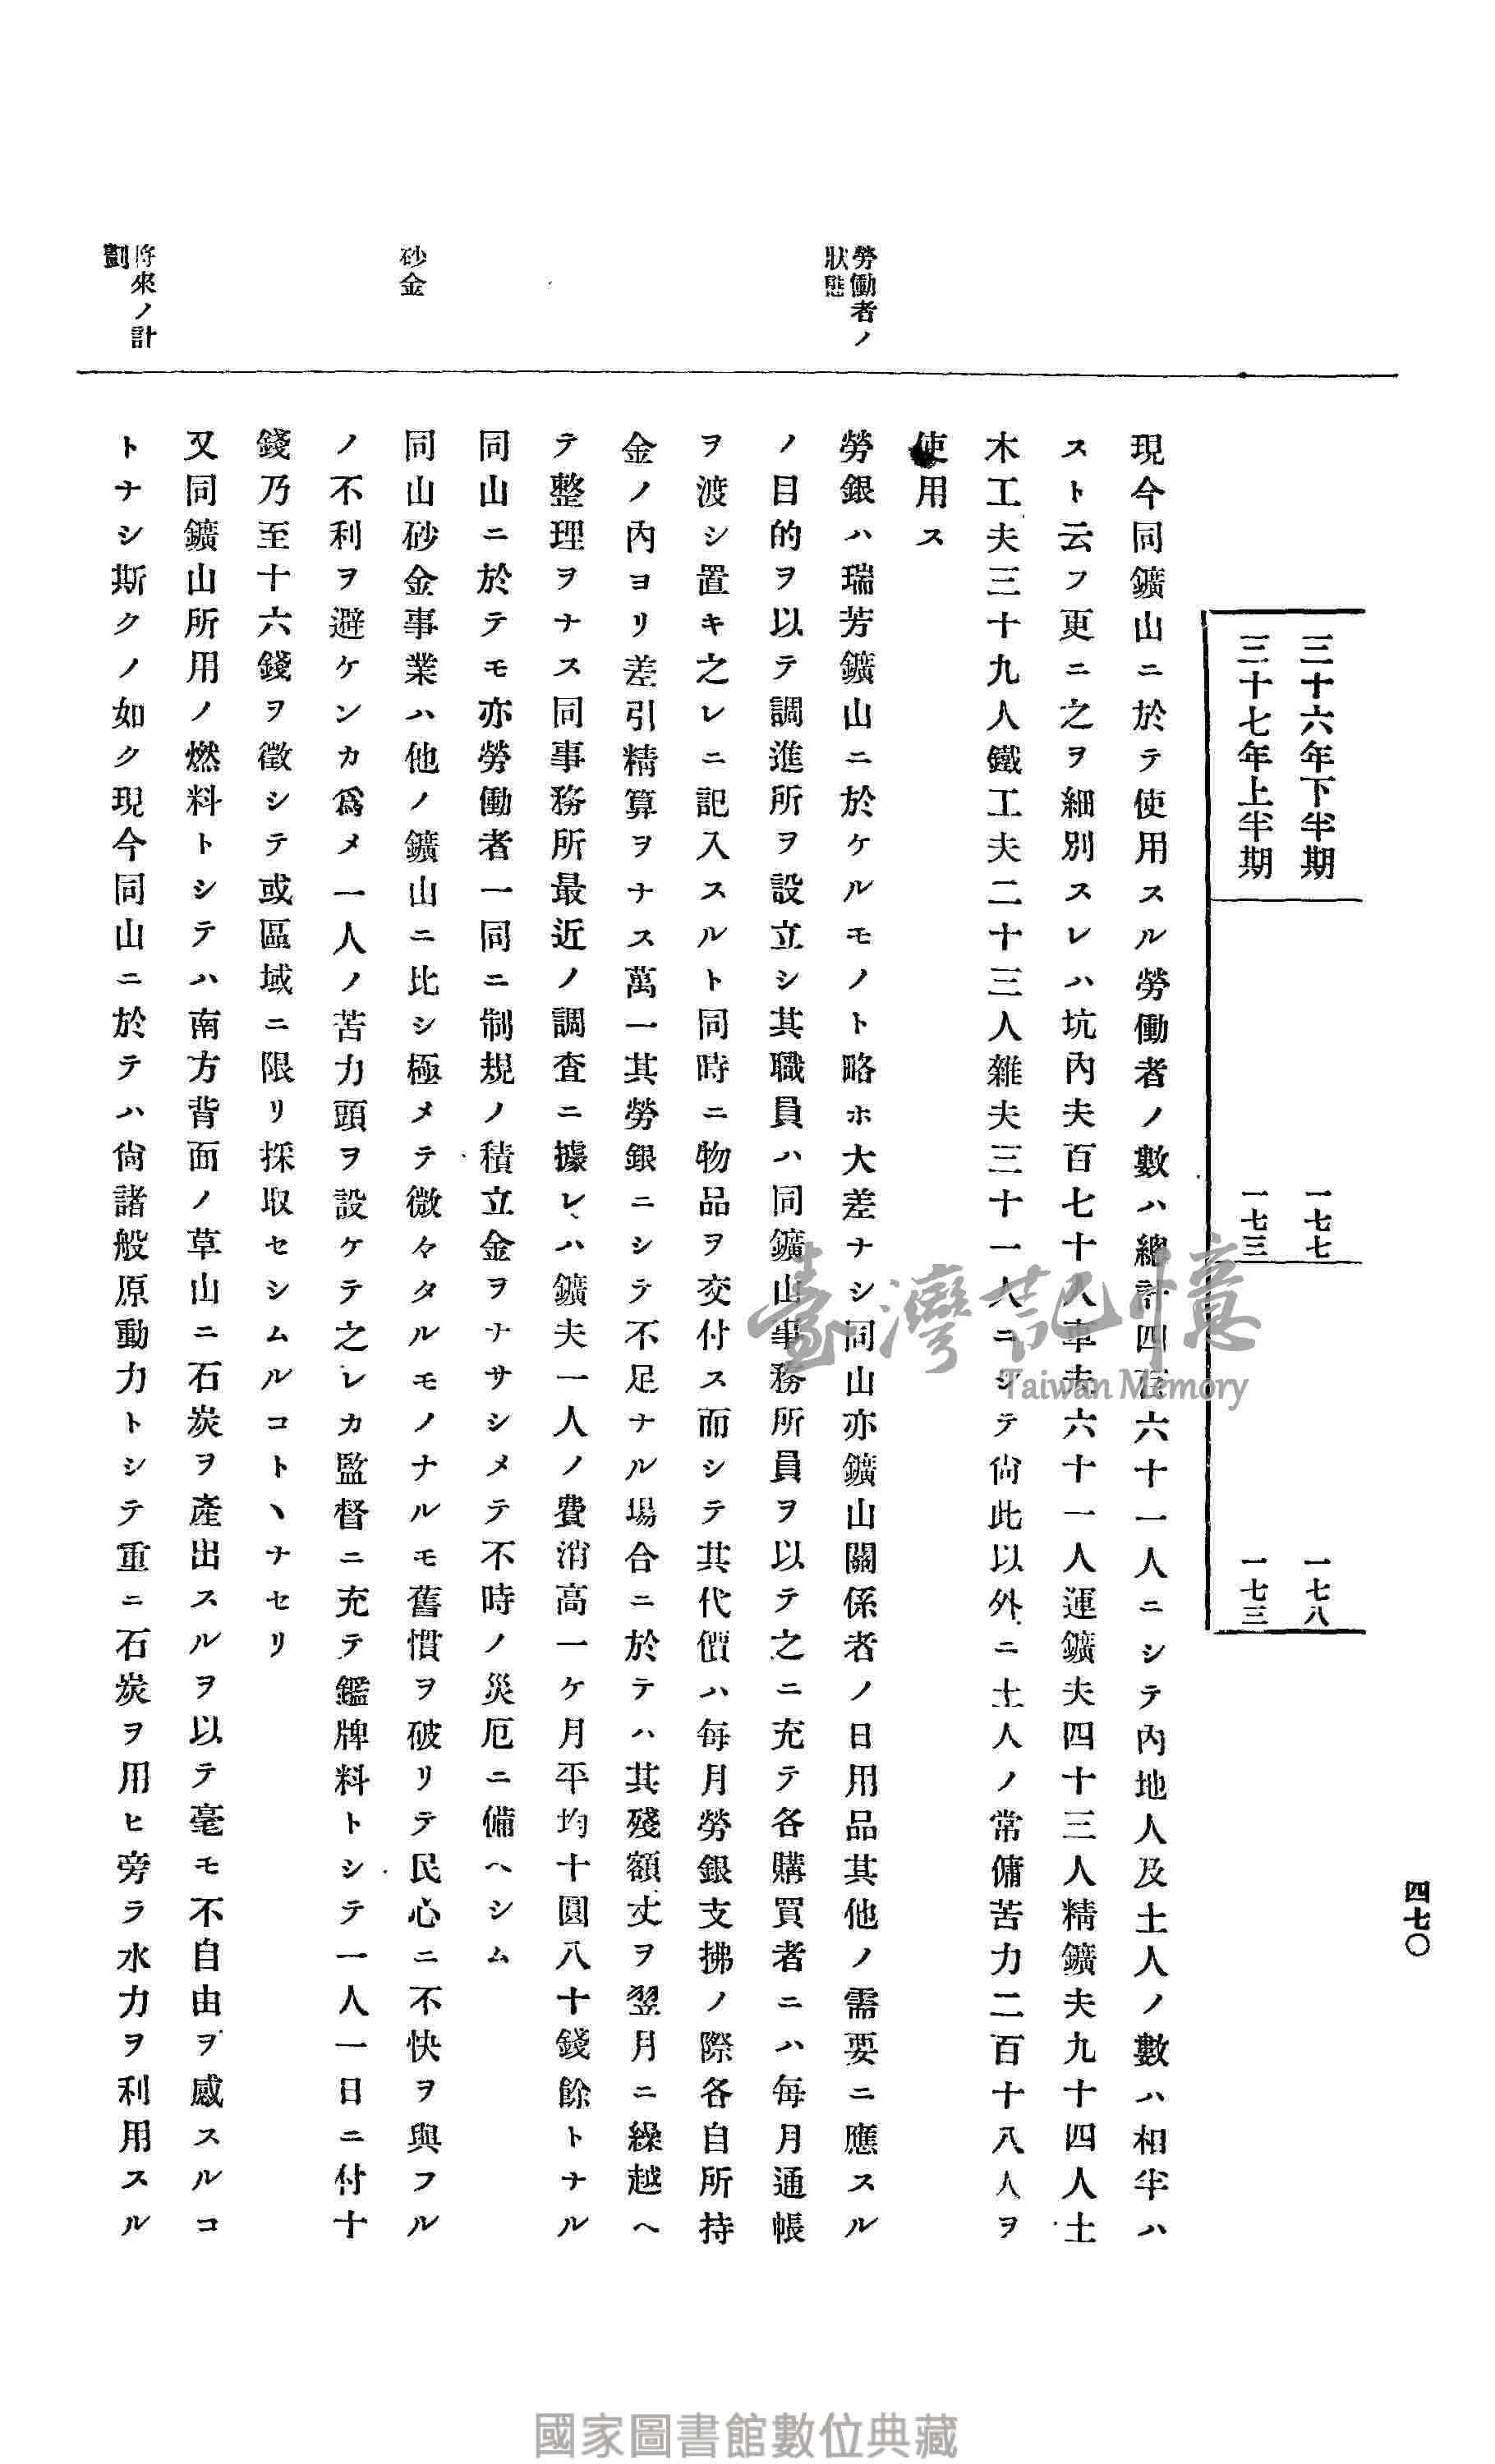 四七〇
三十六年下半期 一七七 一七八
三十七年上半期 一七三 一七三
現今同鑛山ニ於テ使用スル勞働者ノ數ハ總計四百六十一人ニシテ內地人及土人ノ數ハ相半ハ
スト云フ更ニ之ヲ細別スレハ坑內夫百七十人車夫六十一人運鑛夫四十三人精鑛夫九十四人土
木工夫三十九人鐵工夫二十三人雜夫三十一人ニシテ尙此以外ニ土人ノ常傭苦力二百十八人ヲ
使用ス
勞働者ノ
狀態
勞銀ハ瑞芳鑛山ニ於ケルモノト略ホ大差ナシ同山亦鑛山關係者ノ日用品其他ノ需要ニ應スル
ノ目的ヲ以テ調進所ヲ設立シ其職員ハ同鑛山事務所員ヲ以テ之ニ充テ各購買者ニハ每月通帳
ヲ渡シ置キ之レニ記入スルト同時ニ物品ヲ交付ス而シテ其代價ハ每月勞銀支拂ノ際各自所持
金ノ內ヨリ差引精算ヲナス萬一其勞銀ニシテ不足ナル場合ニ於テハ其殘額丈ヲ翌月ニ繰越ヘ
テ整理ヲナス同事務所最近ノ調查ニ據レハ鑛夫一人ノ費消高一ケ月平均十圓八十錢餘トナル
同山ニ於テモ亦勞働者一同ニ制規ノ積立金ヲナサシメテ不時ノ災厄ニ備ヘシム
砂金
同山砂金事業ハ他ノ鑛山ニ比シ極メテ微々タルモノナルモ舊慣ヲ破リテ民心ニ不快ヲ與フル
ノ不利ヲ避ケンカ爲メ一人ノ苦力頭ヲ設ケテ之レカ監督ニ充テ鑑牌料トシテ一人一日ニ付十
錢乃至十六錢ヲ徵シテ或區域ニ限リ採取セシムルコトヽナセリ
將來ノ計
劃
又同鑛山所用ノ燃料トシテハ南方背面ノ草山ニ石炭ヲ產出スルヲ以テ毫モ不自由ヲ感スルコ
トナシ斯クノ如ク現今同山ニ於テハ尙諸般原動力トシテ重ニ石炭ヲ用ヒ旁ラ水力ヲ利用スル
臺灣記憶
Taiwan Memory
國家圖書館數位典藏